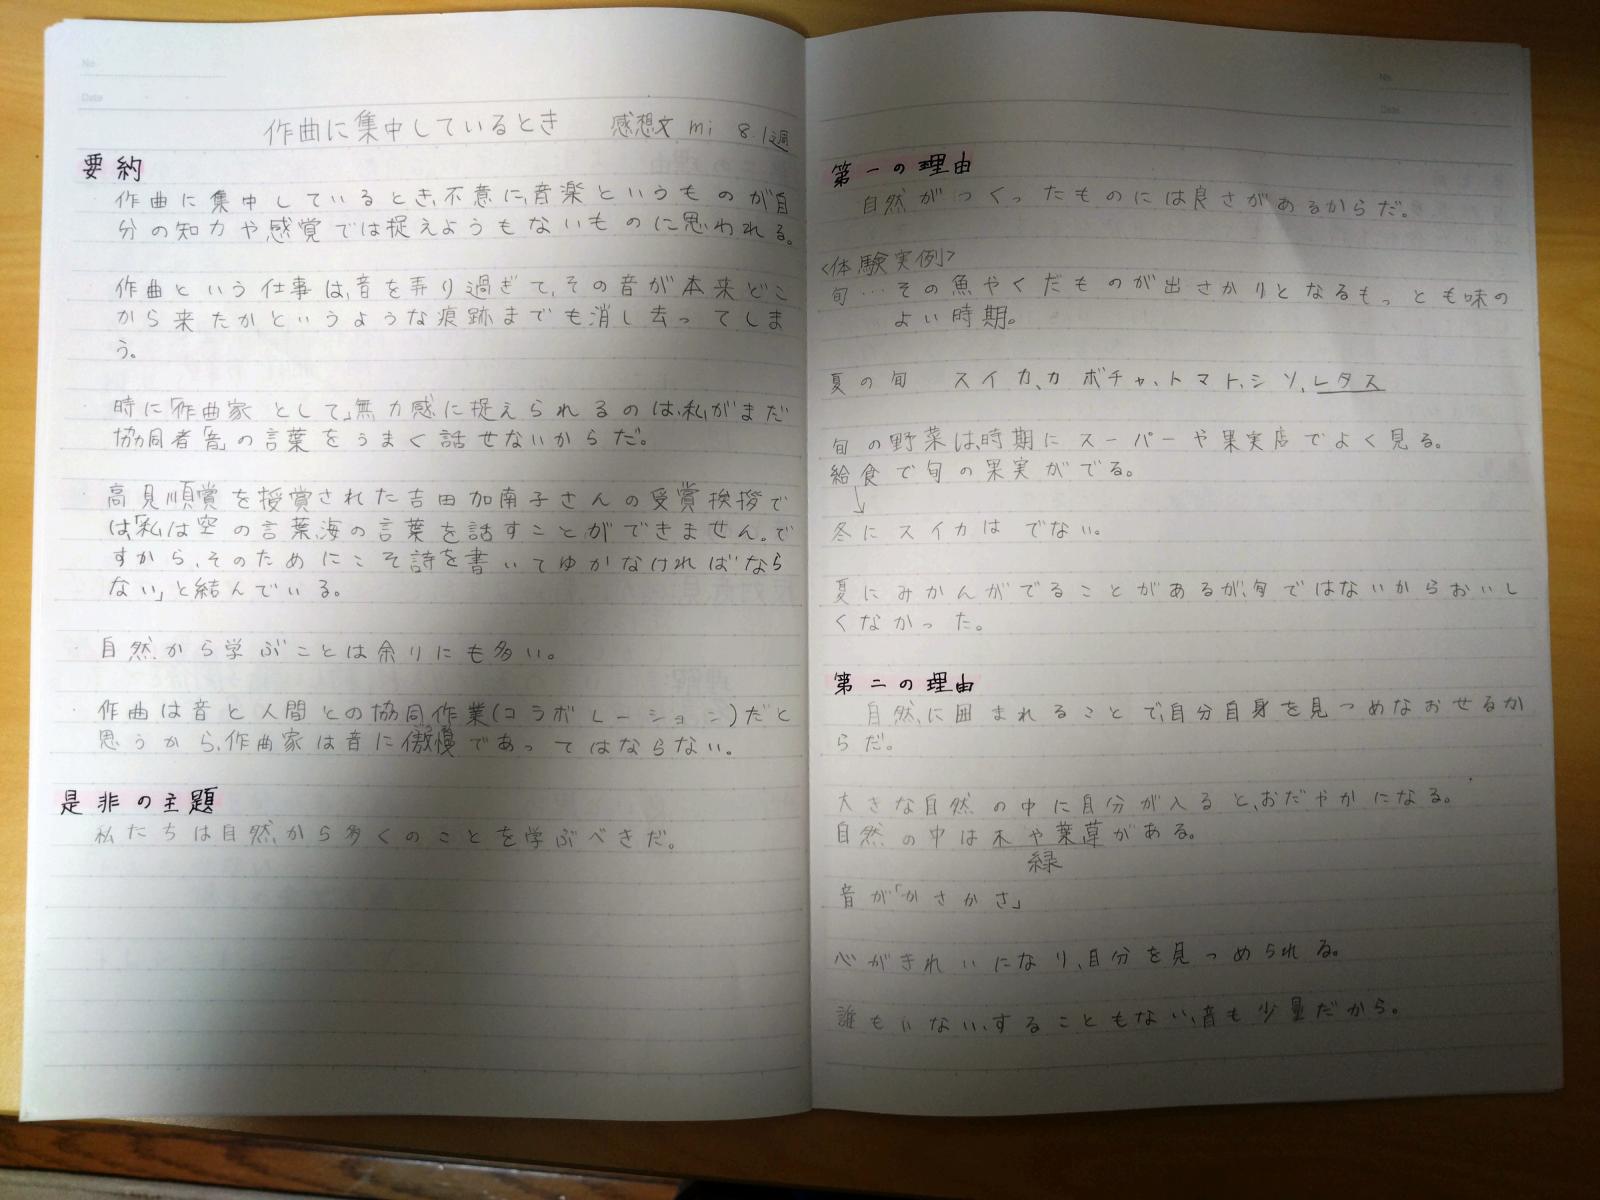 No.
Date
作曲に集中しているとき 感想文 mi 8.1週
要約
作曲に集中しているとき、不意に、音楽というものが自
分の知力や感覚では捉えようもないものに思われる。
作曲という仕事は、音を弄り過ぎて、その音が本来どこ
から来たかというような痕跡までも消し去ってしま
う。
時に「作曲家として」無力感に捉えられるのは、私がまだ
協同者「音」の言葉をうまく話せないからだ。
高見順賞を授賞された吉田加南子さんの受賞挨拶で
は、「私は空の言葉、海の言葉を話すことができません。で
すから、そのためにこそ詩を書いてゆかなければなら
ない」と結んでいる。
自然から学ぶことは余りにも多い。
作曲は音と人間との協同作業(コラボレーション)だと
思うから、作曲家は音に傲慢であってはならない。
是非の主題
私たちは自然から多くのことを学ぶべきだ。
No.
Date
第一の理由
自然がつくったものには良さがあるからだ。
<体験実例>
旬…その魚やくだものが出さかりとなるもっとも味の
よい時期。
夏の旬 スイカ、カボチャ、トマト、シソ、レタス
旬の野菜は、時期にスーパーや果実店でよく見る。
給食で旬の果実がでる。
↓
冬にスイカはでない。
夏にみかんがでることがあるが、旬ではないからおいし
くなかった。
第二の理由
自然に囲まれることで、自分自身を見つめなおせるか
らだ。
大きな自然の中に自分が入ると、おだやかになる。
自然の中は木や葉草がある。
緑
音が「かさかさ」
心がきれいになり、自分を見つめられる。
誰もいない、することもない、音も少量だから。